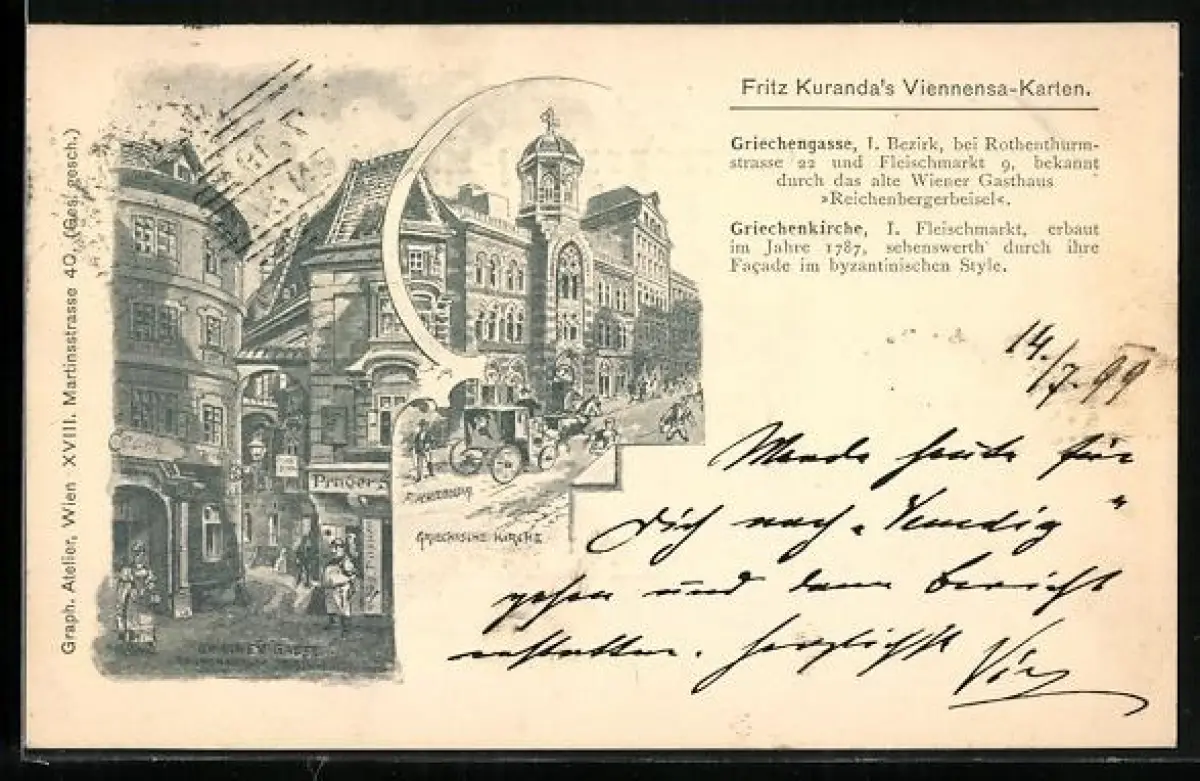 Fritz Kuranda's Viennensa-Karten.
Griechengasse, I. Bezirk, bei Rothenthurm-
strasse 22 und Fleischmarkt 9, bekannt
durch das alte Wiener Gasthaus
»Reichenbergerbeisel«.
Griechenkirche, I. Fleischmarkt, erbaut
im Jahre 1787, sehenswerth durch ihre
Façade im byzantinischen Style.
14./7. 99
Werde heute für
Dich nach „Venedig"
gehen und dann Bericht
erstatten. Herzlichst
Graph. Atelier, Wien XVIII. Martinsstrasse 40. (Ges. gesch.)
GRIECHISCHE KIRCHE